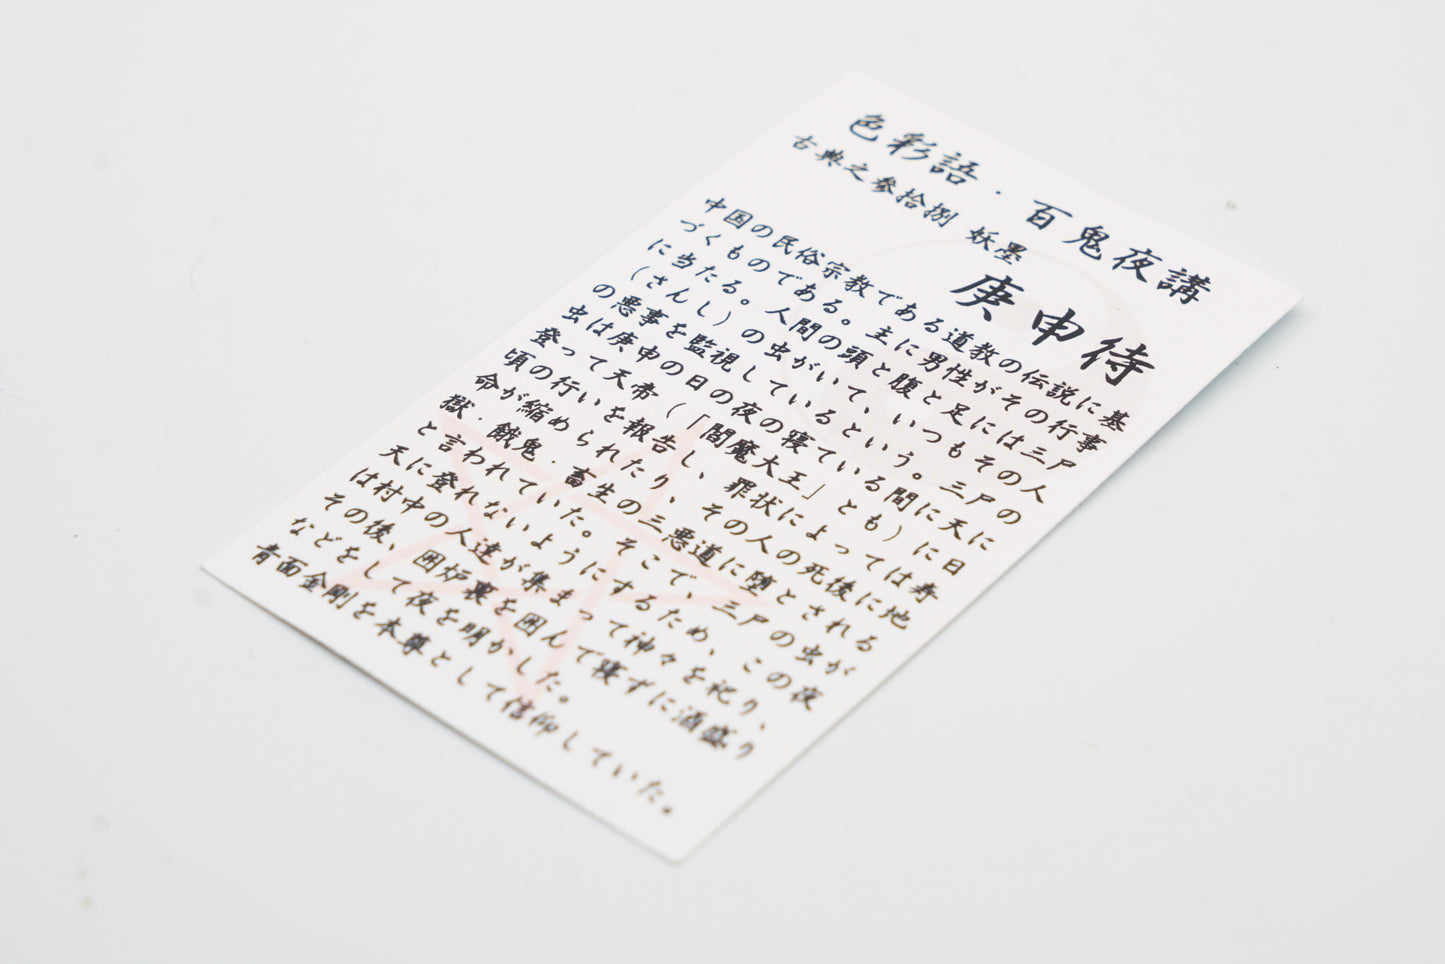 色彩語・百鬼夜講
古典之参拾捌 妖墨
庚申待
中国の民俗宗教である道教の伝説に基
づくものである。主に男性がその行事
に当たる。人間の頭と腹と足には三尸
（さんし）の虫がいて、いつもその人
の悪事を監視しているという。三尸の
虫は庚申の日の夜の寝ている間に天に
登って天帝（「閻魔大王」とも）に日
頃の行いを報告し、罪状によっては寿
命が縮められたり、その人の死後に地
獄・餓鬼・畜生の三悪道に堕とされる
と言われていた。そこで、三尸の虫が
天に登れないようにするため、この夜
は村中の人達が集まって神々を祀り、
その後、囲炉裏を囲んで寝ずに酒盛り
などをして夜を明かした。
青面金剛を本尊として信仰していた。